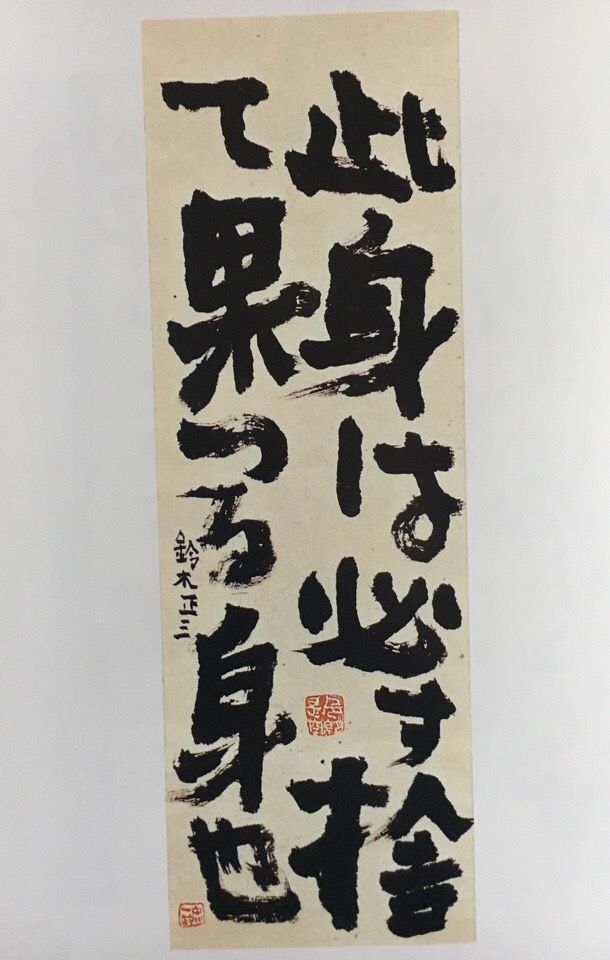 此身は必す捨
て果つる身也
鈴木正三